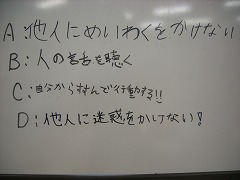 A:他人にめいわくをかけない
B:人の言舌を聴く
C:自分から進んで行動する!!
D:他人に迷惑をかけない!